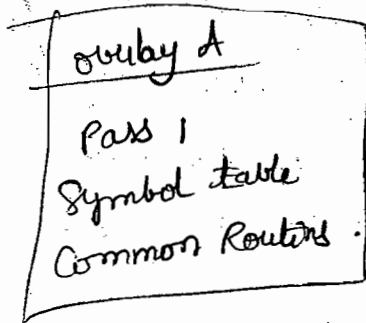 overlay A
Pass 1
Symbol table
Common Routins.